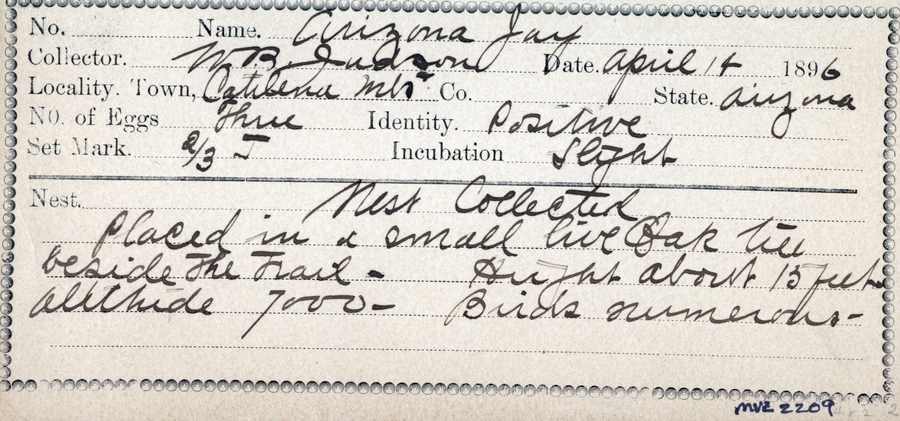 No. Name. Arizona Jay
Collector. W.B. Judson Date. April 14 1896
Locality. Town, Catilena Mts Co. State. Arizona
NO. of Eggs Three Identity. Positive
Set Mark. 2/3 J Incubation Slight
Nest. Nest Collected
Placed in a small live Oak tree
beside the Trail - Height about 15 feet.
altitude 7000 - Birds numerous -
MVZ 2209